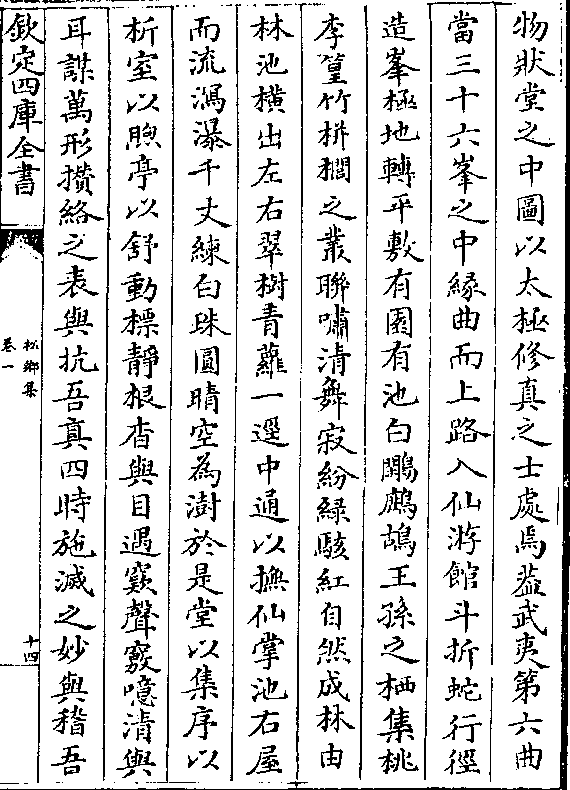 物狀堂之中圖以太極修真之士處焉葢武夷第六曲
當三十六峯之中緣曲而上路入仙游館斗折蛇行徑
造峯極地轉平敷有園有池白鷴鷓鴣王孫之栖集桃
李篁竹栟櫚之叢聯嘯清舞寂紛綠駭紅自然成林由
林池橫出左右翠樹青蘿一逕中通以撫仙掌池右屋
而流瀉瀑千丈練白珠圓晴空為澍於是堂以集序以
析室以煦亭以舒動標靜根杳與目遇窾聲竅噫清與
耳謀萬形攢絡之表與抗吾真四時施滅之妙與稽吾
欽定四庫全書
松鄉集
卷一
十四